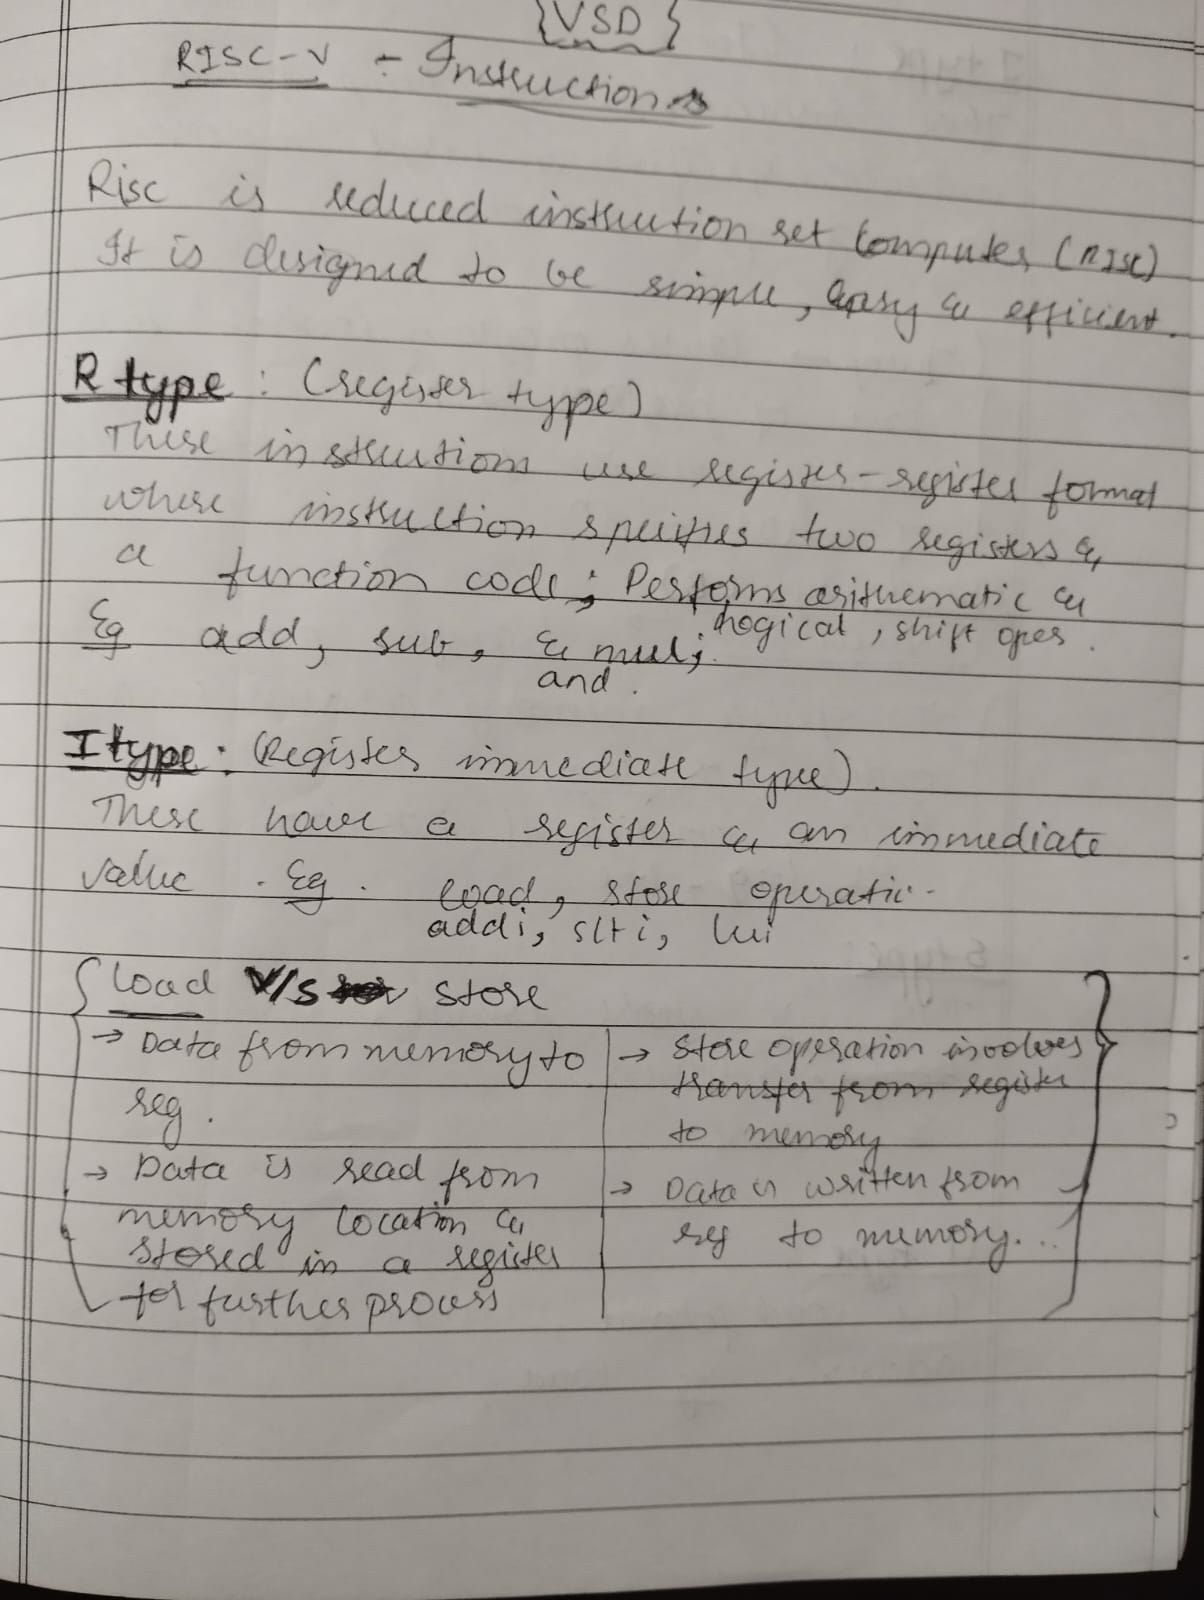 {VSD}
RISC-V - Instructions
Risc is reduced instruction set computer (RISC)
It is designed to be simple, easy & efficient.
R type : (register type)
These instructions use register-register format
where instruction specifies two registers &
a function code; Performs arithematic &
logical, shift opes.
Eg add, sub, & mul;
and.
I type : (Register immediate type).
These have a register & an immediate
value. Eg. load, store operatic-
addi, slti, lui
Load V/S store
→ Data from memory to
reg.
→ Data is read from
memory location &
stored in a register
for further process
→ Store operation involves
transfer from register
to memory
→ Data is written from
reg to memory...